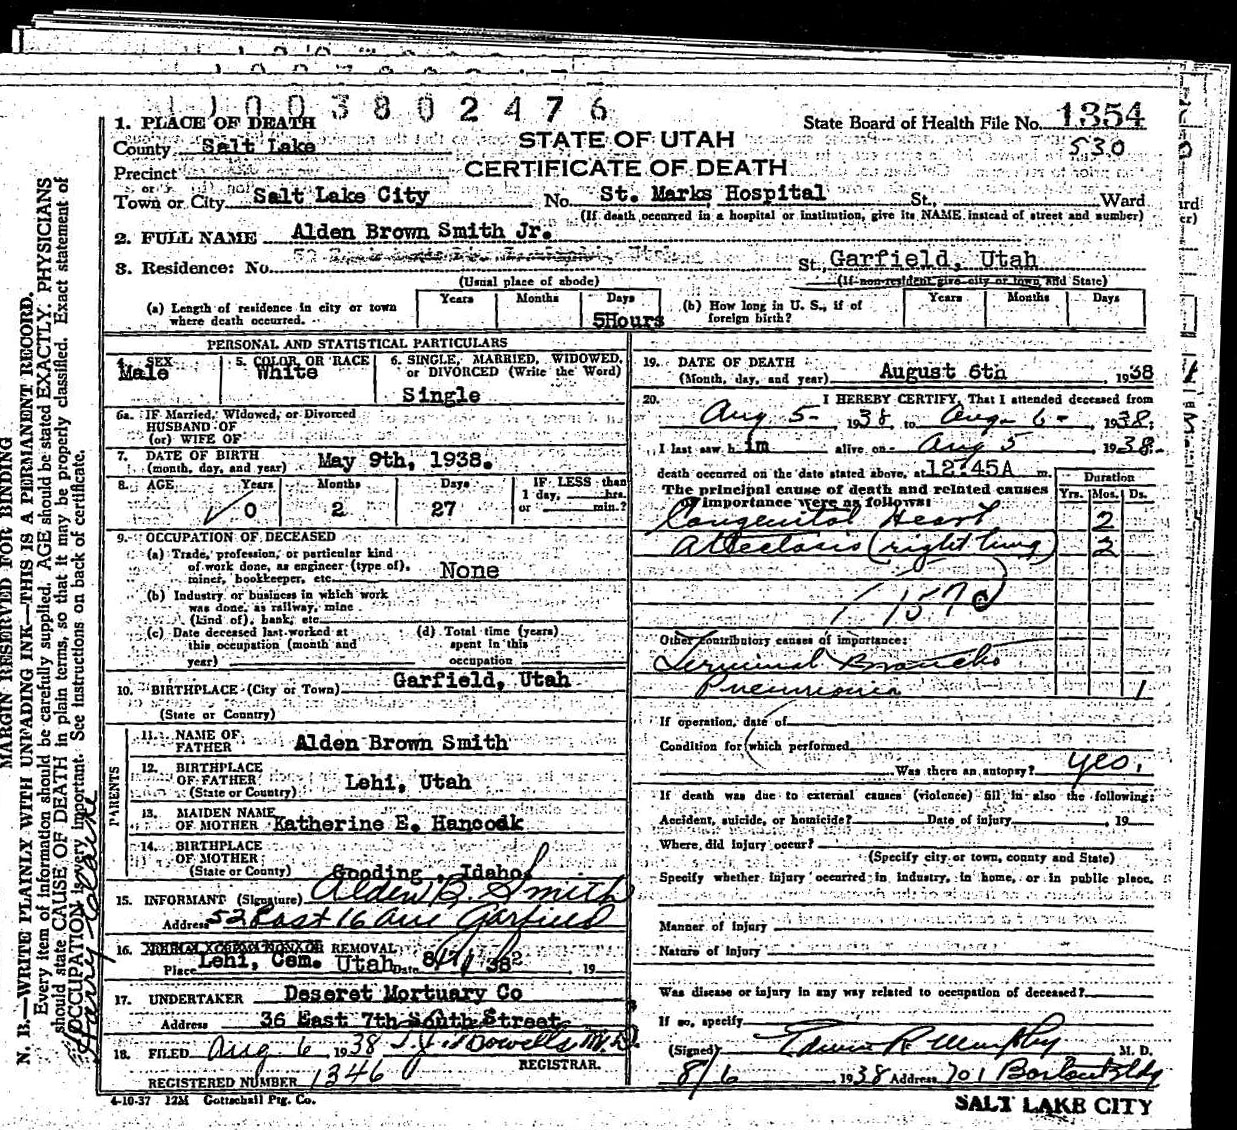 1003802476
1. PLACE OF DEATH
State Board of Health File No. 1354
530
County Salt Lake
STATE OF UTAH
CERTIFICATE OF DEATH
Precinct
or
Town or City Salt Lake City No. St. Marks Hospital St., Ward
(If death occurred in a hospital or institution, give its NAME instead of street and number)
2. FULL NAME Alden Brown Smith Jr.
3. Residence: No. St., Garfield, Utah
(Usual place of abode) (If non-resident give city or town and State)
(a) Length of residence in city or town where death occurred. Years Months Days 5Hours
(b) How long in U. S., if of foreign birth? Years Months Days
PERSONAL AND STATISTICAL PARTICULARS
4. SEX Male
5. COLOR OR RACE White
6. SINGLE, MARRIED, WIDOWED, or DIVORCED (Write the Word)
Single
6a. IF Married, Widowed, or Divorced
HUSBAND OF
(or) WIFE OF
7. DATE OF BIRTH
(month, day, and year) May 9th, 1938.
8. AGE Years Months Days IF LESS than
1 day, hrs.
or min.?
0 2 27
9. OCCUPATION OF DECEASED
(a) Trade, profession, or particular kind
of work done, as engineer (type of),
miner, bookkeeper, etc. None
(b) Industry or business in which work
was done, as railway, mine
(kind of), bank, etc.
(c) Date deceased last worked at
this occupation (month and
year)
(d) Total time (years)
spent in this
occupation
10. BIRTHPLACE (City or Town) Garfield, Utah
(State or Country)
PARENTS
11. NAME OF
FATHER Alden Brown Smith
12. BIRTHPLACE
OF FATHER
(State or Country) Lehi, Utah
13. MAIDEN NAME
OF MOTHER Katherine E. Hancock
14. BIRTHPLACE
OF MOTHER
(State or County) Gooding, Idaho
15. INFORMANT (Signature) Alden B. Smith
Address 52 East 16 Ave Garfield
16. REMOVAL
Place Lehi, Cem. Utah Date 8/ 38 , 19
17. UNDERTAKER Deseret Mortuary Co
Address 36 East 7th South Street
18. FILED Aug 6 1938 M.D.
REGISTRAR.
REGISTERED NUMBER 1346
4-10-37 12M Gottschall Ptg. Co.
19. DATE OF DEATH
(Month, day, and year) August 6th , 1938
20. I HEREBY CERTIFY, That I attended deceased from
Aug 5- 1938, to Aug- 6- , 1938;
I last saw h im alive on Aug 5 , 1938-
death occurred on the date stated above, at 12:45A m.
The principal cause of death and related causes
of importance were as follows:
Duration
Yrs. Mos. Ds.
Congenital Heart 2
Atlectasis (right lung) 2
157
Other contributory causes of importance:
Terminal Broncho
Pneumonia 1
If operation, date of
Condition for which performed
Was there an autopsy? yes.
If death was due to external causes (violence) fill in also the following:
Accident, suicide, or homicide? Date of injury , 19
Where did injury occur?
(Specify city or town, county and State)
Specify whether injury occurred in industry, in home, or in public place.
Manner of injury
Nature of injury
Was disease or injury in any way related to occupation of deceased?
If so, specify
(Signed) Edwin R Murphy M. D.
8/6 1938 Address 701 Boston Bldg
SALT LAKE CITY
MARGIN RESERVED FOR BINDING
N. B.—WRITE PLAINLY WITH UNFADING INK—THIS IS A PERMANENT RECORD.
Every item of information should be carefully supplied. AGE should be stated EXACTLY. PHYSICIANS
should state CAUSE OF DEATH in plain terms, so that it may be properly classified. Exact statement of
OCCUPATION is very important. See instructions on back of certificate.